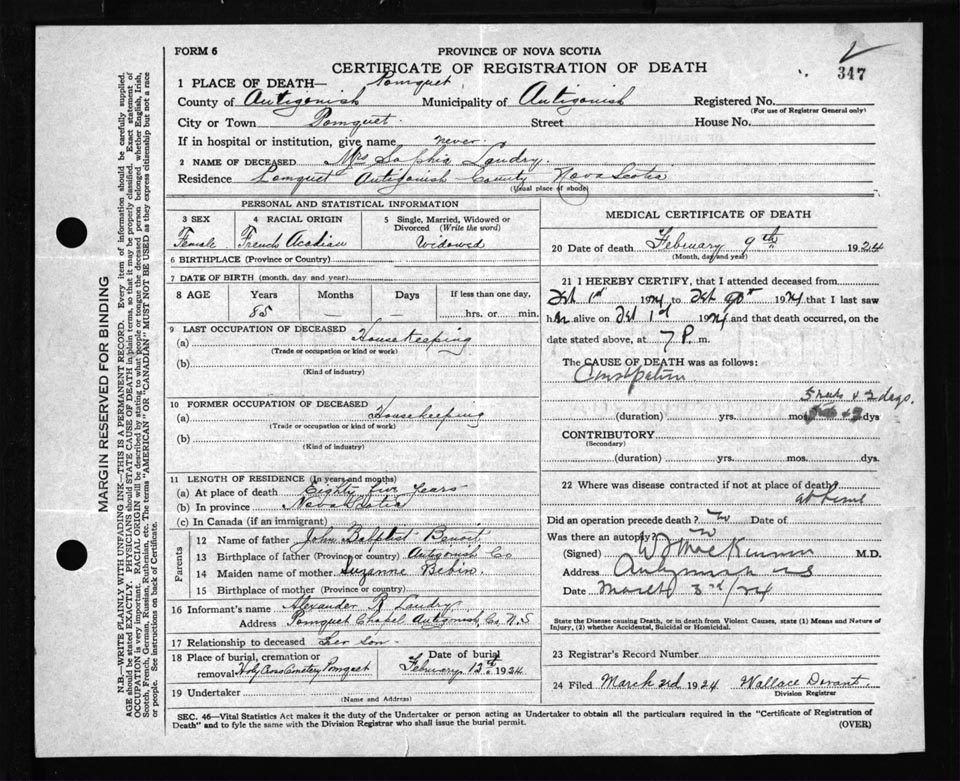 FORM 6
PROVINCE OF NOVA SCOTIA
CERTIFICATE OF REGISTRATION OF DEATH
347
1 PLACE OF DEATH— Pomquet
County of Antigonish Municipality of Antigonish Registered No.
(For use of Registrar General only)
City or Town Pomquet. Street House No.
If in hospital or institution, give name never.
2 NAME OF DECEASED Mrs Sophia Landry.
Residence Pomquet Antigonish County Nova Scotia
(Usual place of abode)
PERSONAL AND STATISTICAL INFORMATION
3 SEX
Female
4 RACIAL ORIGIN
French Acadian
5 Single, Married, Widowed or
Divorced (Write the word)
Widowed
6 BIRTHPLACE (Province or Country)
7 DATE OF BIRTH (month, day and year)
8 AGE Years Months Days If less than one day,
85 — — hrs. or min.
9 LAST OCCUPATION OF DECEASED
(a) Housekeeping
(Trade or occupation or kind or work)
(b)
(Kind of industry)
10 FORMER OCCUPATION OF DECEASED
(a) Housekeeping
(Trade or occupation or kind of work)
(b)
(Kind of industry)
11 LENGTH OF RESIDENCE (In years and months)
(a) At place of death Eighty five years
(b) In province Nova Scotia
(c) In Canada (if an immigrant)
Parents
12 Name of father John Baptist Benoit
13 Birthplace of father (Province or country) Antigonish Co
14 Maiden name of mother Suzanne
15 Birthplace of mother (Province or country)
16 Informant's name Alexander R Landry
Address Pomquet Chapel Antigonish Co. N.S
17 Relationship to deceased Her son
18 Place of burial, cremation or
removal Holy Cross Cemetery Pomquet
Date of burial
February 12th 1924
19 Undertaker
(Name and Address)
MEDICAL CERTIFICATE OF DEATH
20 Date of death February 9th 1924
(Month, day and year)
21 I HEREBY CERTIFY, that I attended deceased from
Feb 1st 1924 to Feb 1924 that I last saw
her alive on Feb 1st 1924 and that death occurred, on the
date stated above, at 7 P. m.
The CAUSE OF DEATH was as follows:
Constipation
5 weeks & 2 days.
(duration) yrs. mos. dys
CONTRIBUTORY
(Secondary)
(duration) yrs. mos. dys.
22 Where was disease contracted if not at place of death?
at home
Did an operation precede death? no Date of
Was there an autopsy? no
(Signed) W J MacKinnon M.D.
Address Antigonish NS
Date March 3rd/24
State the Disease causing Death, or in death from Violent Causes, state (1) Means and Nature of
Injury, (2) whether Accidental, Suicidal or Homicidal.
23 Registrar's Record Number
24 Filed March 3rd 1924 Wallace
Division Registrar
SEC. 46—Vital Statistics Act makes it the duty of the Undertaker or person acting as Undertaker to obtain all the particulars required in the "Certificate of Registration of
Death" and to fyle the same with the Division Registrar who shall issue the burial permit.
(OVER)
MARGIN RESERVED FOR BINDING
N.B.—WRITE PLAINLY WITH UNFADING INK—THIS IS A PERMANENT RECORD. Every item of information should be carefully supplied.
AGE should be stated EXACTLY. PHYSICIANS should STATE CAUSE OF DEATH in plain terms, so that it may be properly classified. Exact statement of
OCCUPATION is very important. RACIAL ORIGIN will be described by stating to what people or tongue the deceased person belonged whether English, Irish,
Scotch, French, German, Russian, Ruthenian, etc. The terms "AMERICAN" OR "CANADIAN" MUST NOT BE USED as they express citizenship but not a race
or people. See instructions on back of Certificate.